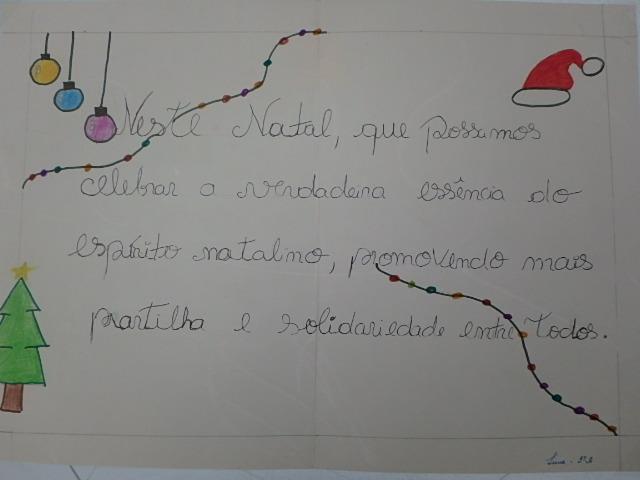 Neste Natal, que possamos
celebrar a verdadeira essência do
espírito natalino, promovendo mais
partilha e solidariedade entre todos.